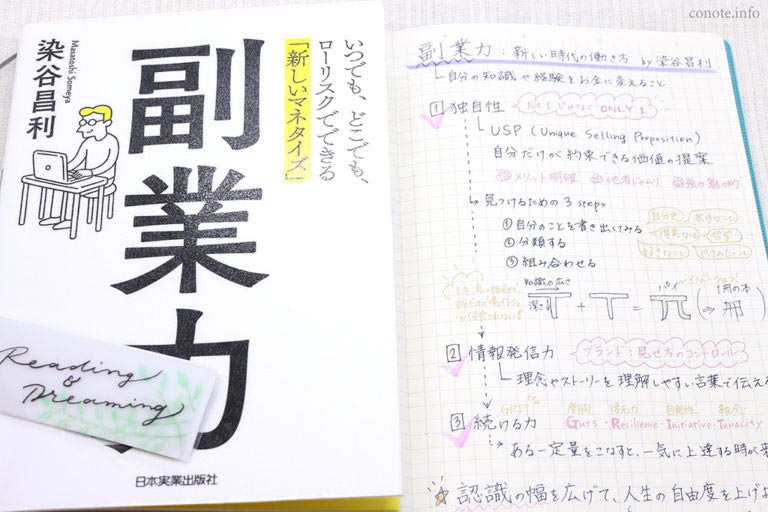 conote.info
いつでも、どこでも、
ローリスクでできる
「新しいマネタイズ」
副業力
Masatoshi Someya
染谷昌利
Reading
&
Dreaming
日本実業出版社
副業力：新しい時代の働き方 by 染谷昌利
自分の知識や経験をお金に変えること
1 独自性 No.1じゃなく ONLY 1
USP (Unique Selling Proposition)
自分だけが約束できる価値の提案
①メリット明確 ②他者じゃムリ ③強力魅力的
見つけるための 3 steps
①自分のことを書き出してみる
②分類する
③組み合わせる
自分史 苦手なこと
得意なこと
好きなこと やってみたいこと
知識の広さ
深さ T + T = π (⇒ 冊)
パイ イノベーション!
2 情報発信力 ブランド：見せ方のコントロール
理念やストーリーを理解しやすい言葉で伝える
3 続ける力
GRIT 度胸 復元力 自発性 執念
Guts・Resilience・Initiative・Tenacity
ある一定量をこなすと、一気に上達する時が来
認識の幅を広げて、人生の自由度を上げよ